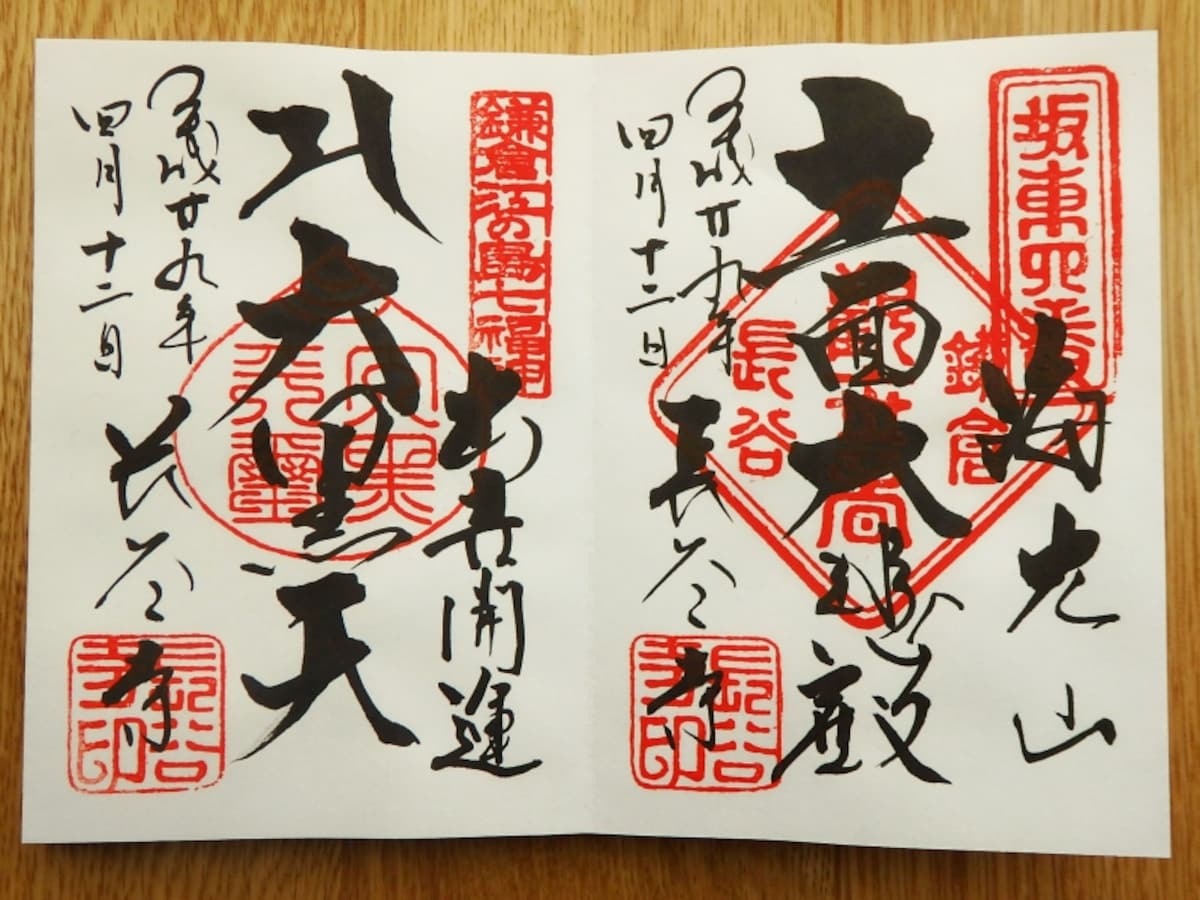 坂東四番
海光山
十一面大悲殿
鎌倉
長谷
平成廿九年
四月十二日
長谷寺
長谷寺印
鎌倉江の島七福神
出世開運
大黒天
平成廿九年
四月十二日
長谷寺
長谷寺印